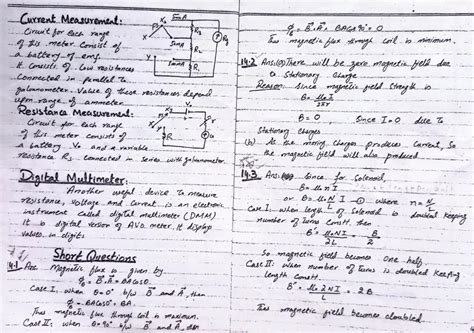 Current Measurement:
Circuit for each range
of this meter consist of
a battery of emf.
It consists of low resistances
Connected in parallel to
galvanometer. Value of these resistances depend
upon range of ammeter.
Resistance Measurement:
Circuit for each range
of this meter consists of
a battery V₀ and a variable
resistance Rs connected in series with galvanometer.
Digital Multimeter:
Another useful device to measure
resistance, voltage and current is an electronic
instrument called digital multimeter (DMM)
It is digital version of AVO meter. It displays
values in digits.
Short Questions
14.1 Ans. Magnetic flux is given by
Φ = B.A = BACosθ.
Case I: when θ = 0° b/w B and A, then
Φ = BACos0° = BA
Thus magnetic flux through coil is maximum.
Case II: when θ = 90° b/w B and A, then
X
Y
R₁
R₂
5mA
Rg
X
Y
R
Φ = B.A = BACos90° = 0
Thus magnetic flux through coil is minimum.
14.2 Ans:(a) There will be zero magnetic field due
to Stationary Charge
Reason: Since magnetic field strength is
B = μ₀I
2πr
B = 0 Since I = 0 due to
Stationary Charges
(b) As the moving charges produces current, so
the magnetic field will also produced.
14.3 Ans: Since for Solenoid
B = μ₀nI
or B = μ₀ N I —① where n = N
L L
Case I: when length of Solenoid is doubled keeping
number of turns const. then
B' = μ₀NI = B
2L 2
So magnetic field becomes one half.
Case II: when number of turns is doubled keeping
length const. then
B' = μ₀2NI = 2B
L
Thus magnetic field becomes doubled.